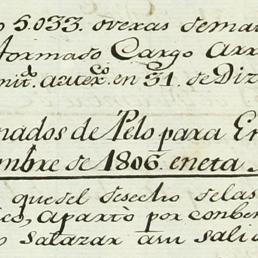 o 5.033. ovexas de mar
formado Cargo Arr
mit.o az.ter.co en 31. de Diz
nados de Pelo para En
mbre de 1806. en eta
que del desecho de las
ico, apartò por conben
o Salazar a su salid